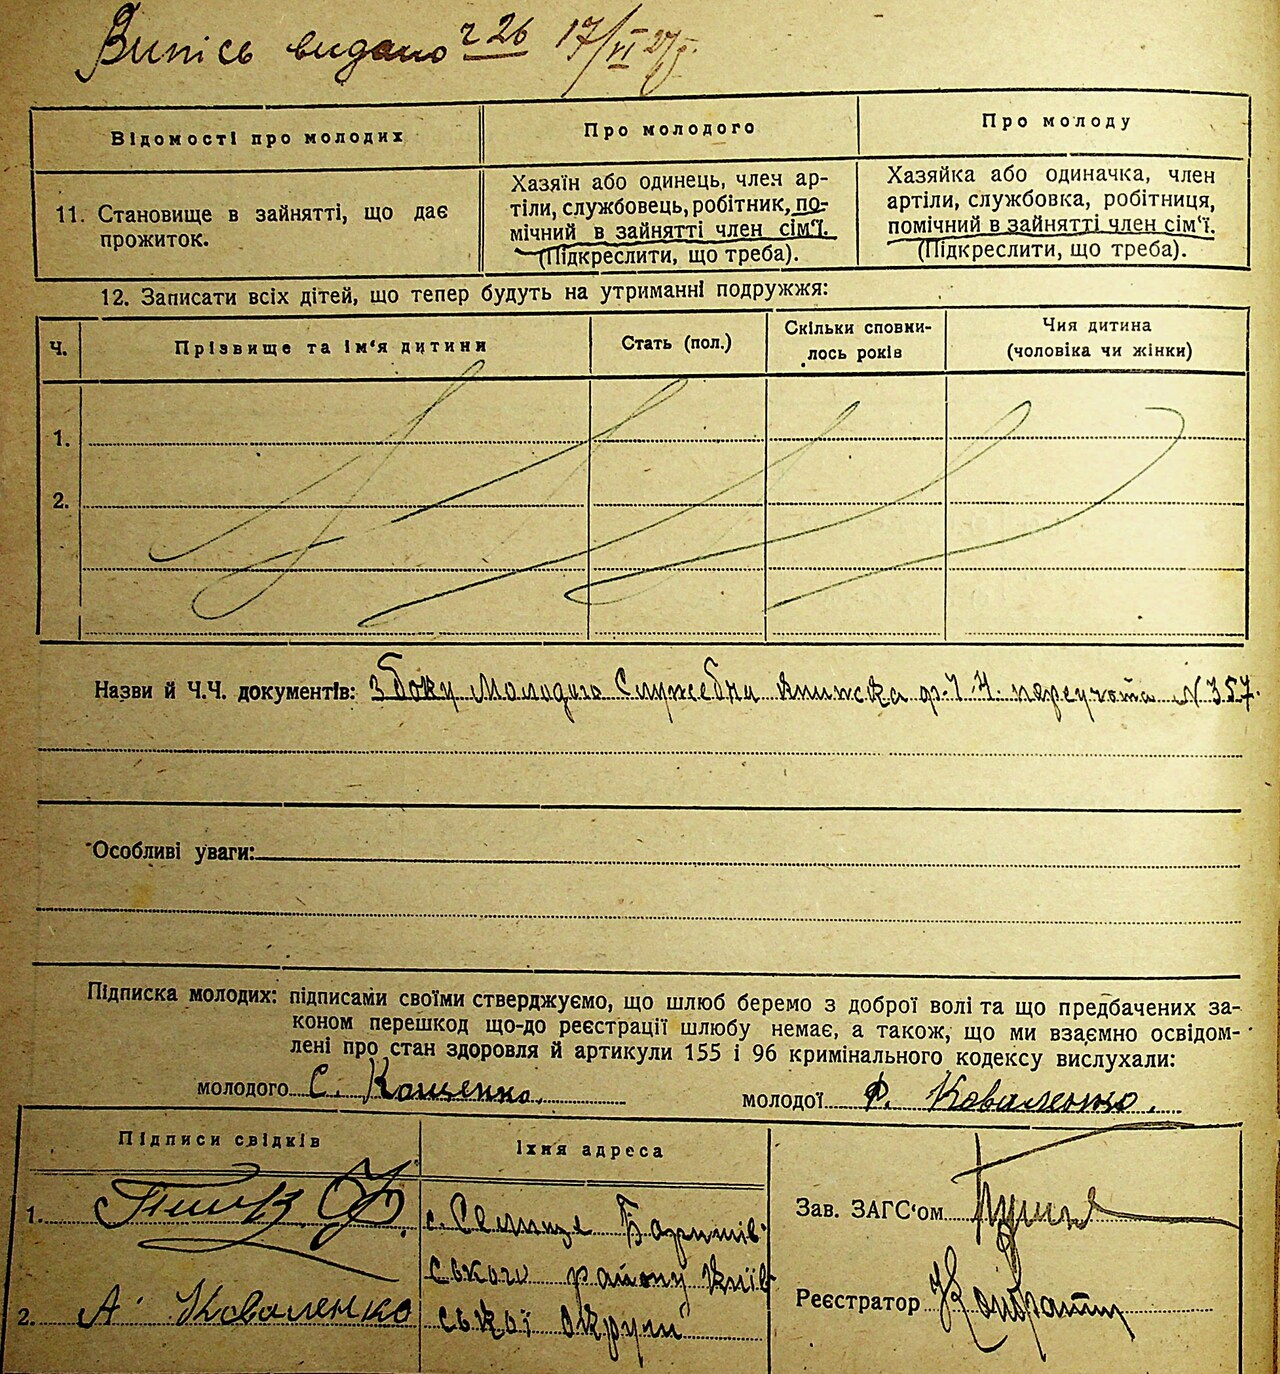 Випісь видано ч 26 17/VI 27р.
Відомості про молодих
Про молодого
Про молоду
11. Становище в зайнятті, що дає
прожиток.
Хазяїн або одинець, член ар-
тіли, службовець, робітник, по-
мічний в зайнятті член сім'ї.
(Підкреслити, що треба).
Хазяйка або одиначка, член
артіли, службовка, робітниця,
помічний в зайнятті член сім'ї.
(Підкреслити, що треба).
12. Записати всіх дітей, що тепер будуть на утриманні подружжя:
Ч.
Прізвище та ім'я дитини
Стать (пол.)
Скільки сповни-
лось років
Чия дитина
(чоловіка чи жінки)
1.
2.
Назви й Ч.Ч. документів: З боку Молодого Службова книжка N 357.
Особливі уваги:
Підписка молодих: підписами своїми стверджуємо, що шлюб беремо з доброї волі та що предбачених за-
коном перешкод що-до реєстрації шлюбу немає, а також, що ми взаємно освідом-
лені про стан здоровля й артикули 155 і 96 кримінального кодексу вислухали:
молодого С. Кащенко. молодої Ф. Коваленко.
Підписи свідків
Їхня адреса
1.
с. Селище Баришів-
ського району Київ-
2. А Коваленко
ської округи
Зав. ЗАГС'ом
Реєстратор